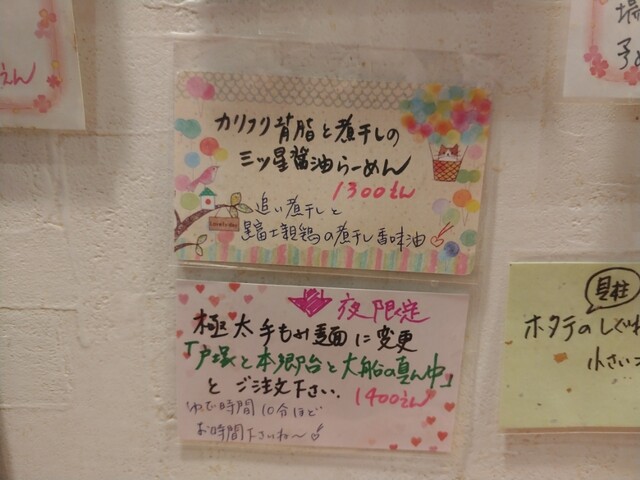 えん
カリフリ背脂と煮干しの
三ツ星醤油らーめん
1300えん
追い煮干しと
星富士親鶏の煮干し香味油
夜限定
極太手もみ麺に変更
「戸塚と本郷台と大船の真ん中」
とご注文下さい。
1400えん
ゆで時間10分ほど
お時間下さいね〜
貝柱
ホタテのしぐれ
小さい